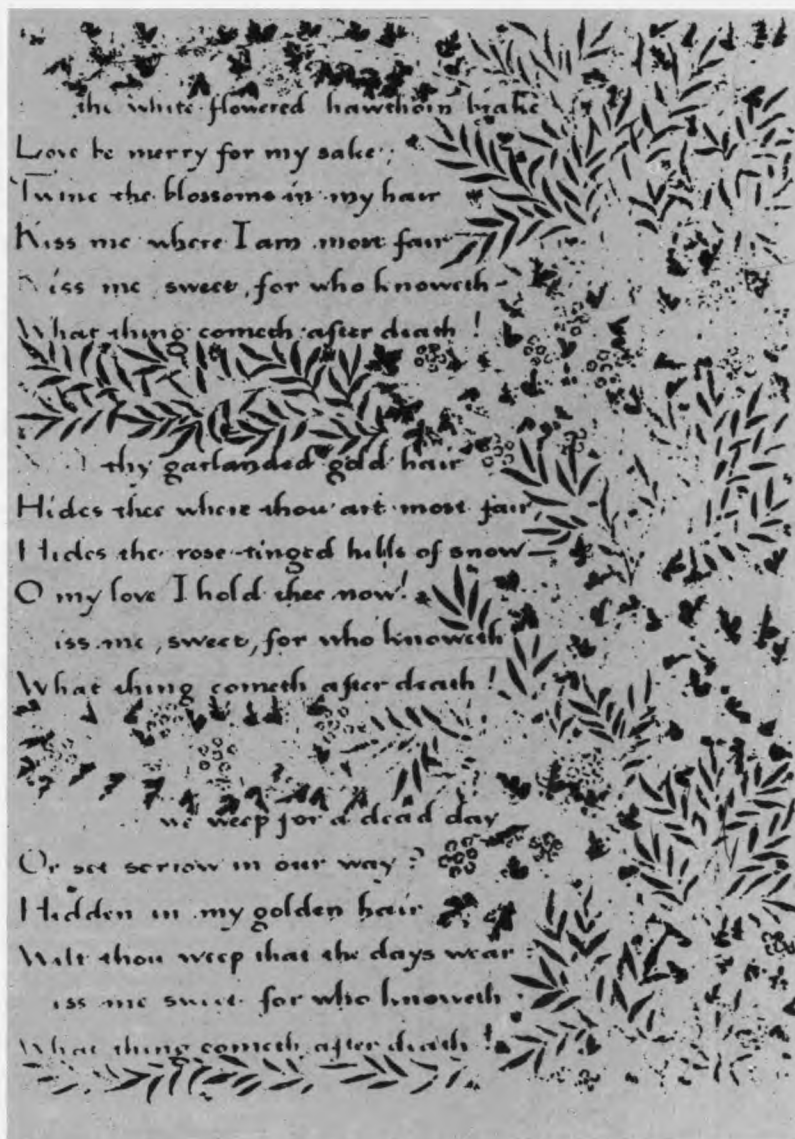 the white-flowered hawthorn brake
Love be merry for my sake;
Twine the blossoms in my hair
Kiss me where I am most fair
Kiss me, sweet, for who knoweth
What thing cometh after death!
thy garlanded gold hair
Hides thee where thou art most fair
Hides the rose-tinged hills of snow
O my love I hold thee now!
iss me, sweet, for who knoweth
What thing cometh after death!
we weep for a dead day
Or set sorrow in our way?
Hidden in my golden hair
Wilt thou weep that the days wear
iss me sweet for who knoweth
What thing cometh after death!